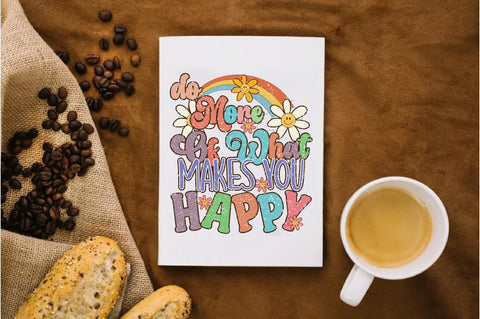 do
More
Of What
MAKES YOU
HAPPY